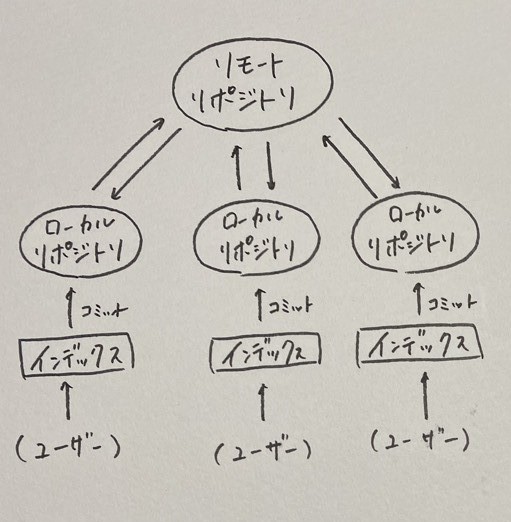 リモート
リポジトリ
ローカル
リポジトリ
ローカル
リポジトリ
ローカル
リポジトリ
コミット
コミット
コミット
インデックス
インデックス
インデックス
(ユーザー)
(ユーザー)
(ユーザー)